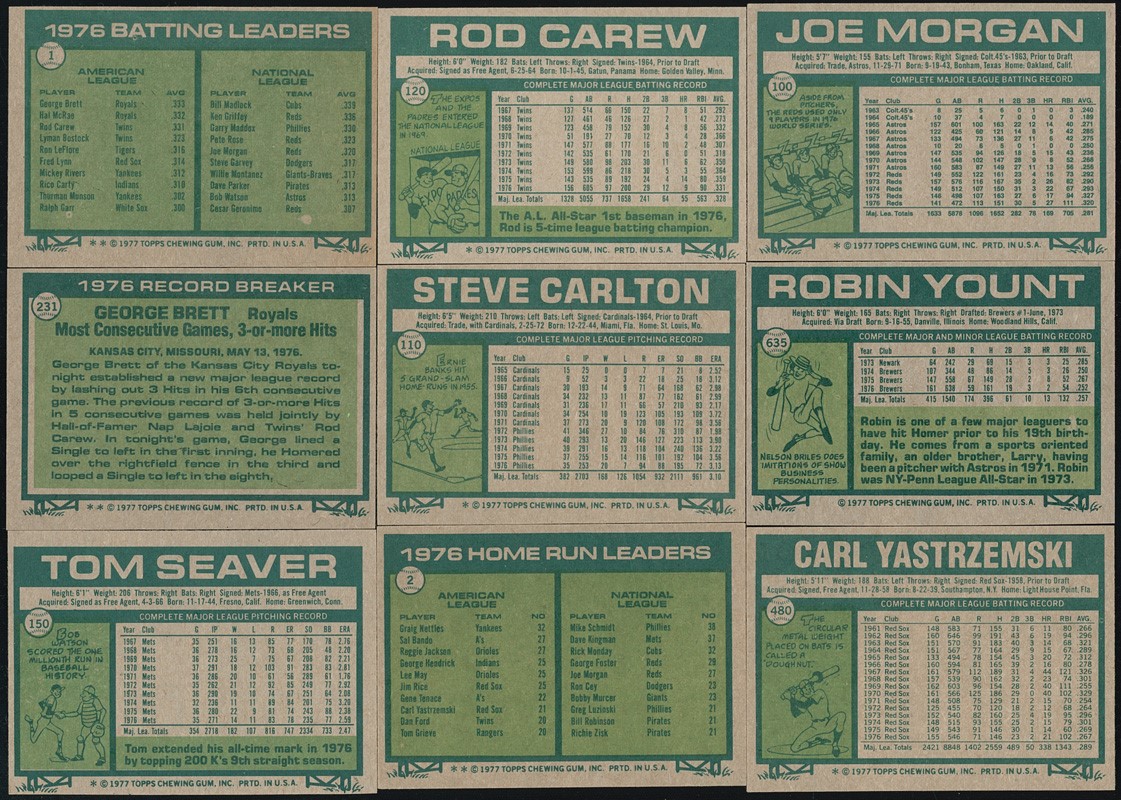 1976 BATTING LEADERS
1
AMERICAN LEAGUE
PLAYER TEAM AVG
George Brett Royals .333
Hal McRae Royals .332
Rod Carew Twins .331
Lyman Bostock Twins .323
Ron LeFlore Tigers .316
Fred Lynn Red Sox .314
Mickey Rivers Yankees .312
Rico Carty Indians .310
Thurman Munson Yankees .302
Ralph Garr White Sox .300
NATIONAL LEAGUE
PLAYER TEAM AVG
Bill Madlock Cubs .339
Ken Griffey Reds .336
Garry Maddox Phillies .330
Pete Rose Reds .323
Joe Morgan Reds .320
Steve Garvey Dodgers .317
Willie Montanez Giants-Braves .317
Dave Parker Pirates .313
Bob Watson Astros .313
Cesar Geronimo Reds .307
** © 1977 TOPPS CHEWING GUM, INC. PRTD. IN U.S.A.
ROD CAREW
Height: 6'0" Weight: 182 Bats: Left Throws: Right Signed: Twins-1964, Prior to Draft
Acquired: Signed as Free Agent, 6-25-64 Born: 10-1-45, Gatun, Panama Home: Golden Valley, Minn.
120
COMPLETE MAJOR LEAGUE BATTING RECORD
THE EXPOS
AND THE
PADRES ENTERED
THE NATIONAL LEAGUE
IN 1969.
NATIONAL LEAGUE
EXPO PADRES
Year Club G AB R H 2B 3B HR RBI AVG.
1967 Twins 137 514 66 150 22 7 8 51 .292
1976 Twins 156 605 97 200 29 12 9 90 .331
Maj. Lea. Totals 1328 5055 737 1658 241 64 55 563 .328
The A.L. All-Star 1st baseman in 1976,
Rod is 5-time league batting champion.
** © 1977 TOPPS CHEWING GUM, INC. PRTD. IN U.S.A.
JOE MORGAN
Height: 5'7" Weight: 155 Bats: Left Throws: Right Signed: Colt.45's-1963, Prior to Draft
Acquired: Trade, Astros, 11-29-71 Born: 9-19-43, Bonham, Texas Home: Oakland, Calif.
100
COMPLETE MAJOR LEAGUE BATTING RECORD
ASIDE FROM
PITCHERS,
THE REDS USED ONLY
9 PLAYERS IN 1976
WORLD SERIES.
Year Club G AB R H 2B 3B HR RBI AVG.
1963 Colt.45's 8 25 5 6 0 1 0 3 .240
1964 Colt.45's 10 37 4 7 0 0 0 0 .189
1965 Astros 157 601 100 163 22 12 14 40 .271
1966 Astros 122 425 60 121 14 8 5 42 .285
1967 Astros 133 494 73 136 27 11 6 42 .275
1968 Astros 10 20 6 5 0 1 0 0 .250
1969 Astros 147 535 94 126 18 5 15 43 .236
1970 Astros 144 548 102 147 28 9 8 52 .268
1971 Astros 160 583 87 149 27 11 13 56 .256
1972 Reds 149 552 122 161 23 4 16 73 .292
1973 Reds 157 576 116 167 35 2 26 82 .290
1974 Reds 149 512 107 150 31 3 22 67 .293
1975 Reds 146 498 107 163 27 6 17 94 .327
1976 Reds 141 472 113 151 30 5 27 111 .320
Maj. Lea. Totals 1633 5878 1096 1652 282 78 169 705 .281
** © 1977 TOPPS CHEWING GUM, INC. PRTD. IN U.S.A.
1976 RECORD BREAKER
231
GEORGE BRETT Royals
Most Consecutive Games, 3-or-more Hits
KANSAS CITY, MISSOURI, MAY 13, 1976.
George Brett of the Kansas City Royals to-
night established a new major league record
by lashing out 3 Hits in his 6th consecutive
game. The previous record of 3-or-more Hits
in 5 consecutive games was held jointly by
Hall-of-Famer Nap Lajoie and Twins' Rod
Carew. In tonight's game, George lined a
Single to left in the first inning, he Homered
over the rightfield fence in the third and
looped a Single to left in the eighth.
** © 1977 TOPPS CHEWING GUM, INC. PRTD. IN U.S.A.
STEVE CARLTON
Height: 6'5" Weight: 210 Throws: Left Bats: Left Signed: Cardinals-1964, Prior to Draft
Acquired: Trade, with Cardinals, 2-25-72 Born: 12-22-44, Miami, Fla. Home: St. Louis, Mo.
110
COMPLETE MAJOR LEAGUE PITCHING RECORD
ERNIE
BANKS HIT
5 GRAND-SLAM
HOME-RUNS IN 1955.
Year Club G IP W L R ER SO BB ERA
1965 Cardinals 15 25 0 0 7 7 21 8 2.52
1966 Cardinals 9 52 3 3 22 18 25 18 3.12
1976 Phillies 35 253 20 7 94 88 195 72 3.13
Maj. Lea. Totals 382 2703 168 126 1054 932 2111 961 3.10
** © 1977 TOPPS CHEWING GUM, INC. PRTD. IN U.S.A.
ROBIN YOUNT
Height: 6'0" Weight: 165 Bats: Right Throws: Right Drafted: Brewers #1-June, 1973
Acquired: Via Draft Born: 9-16-55, Danville, Illinois Home: Woodland Hills, Calif.
635
COMPLETE MAJOR AND MINOR LEAGUE BATTING RECORD
NELSON BRILES DOES
IMITATIONS OF SHOW
BUSINESS
PERSONALITIES.
Year Club G AB R H 2B 3B HR RBI AVG.
1973 Newark 64 242 29 69 15 3 3 25 .285
1974 Brewers 107 344 48 86 14 5 3 26 .250
1975 Brewers 147 558 67 149 28 2 8 52 .267
1976 Brewers 161 638 59 161 19 3 2 54 .252
Maj. Lea. Totals 415 1540 174 396 61 10 13 132 .257
Robin is one of a few major leaguers to
have hit Homer prior to his 19th birth-
day. He comes from a sports oriented
family, an older brother, Larry, having
been a pitcher with Astros in 1971. Robin
was NY-Penn League All-Star in 1973.
* © 1977 TOPPS CHEWING GUM, INC. PRTD. IN U.S.A.
TOM SEAVER
Height: 6'1" Weight: 206 Throws: Right Bats: Right Signed: Mets-1966, as Free Agent
Acquired: Signed as Free Agent, 4-3-66 Born: 11-17-44, Fresno, Calif. Home: Greenwich, Conn.
150
COMPLETE MAJOR LEAGUE PITCHING RECORD
BOB
WATSON
SCORED THE ONE
MILLIONTH RUN IN
BASEBALL
HISTORY.
Year Club G IP W L R ER SO BB ERA
1967 Mets 35 251 16 13 85 77 170 78 2.76
1968 Mets 36 278 16 12 73 68 205 48 2.20
1969 Mets 36 273 25 7 75 67 208 82 2.21
1970 Mets 37 291 18 12 103 91 283 83 2.81
1971 Mets 36 286 20 10 61 56 289 61 1.76
1972 Mets 35 262 21 12 92 85 249 77 2.92
1973 Mets 36 290 19 10 74 67 251 64 2.08
1974 Mets 32 236 11 11 89 84 201 75 3.20
1975 Mets 36 280 22 9 81 74 243 88 2.38
1976 Mets 35 271 14 11 83 78 235 77 2.59
Maj. Lea. Totals 354 2718 182 107 816 747 2334 733 2.47
Tom extended his all-time mark in 1976
by topping 200 K's 9th straight season.
* © 1977 TOPPS CHEWING GUM, INC. PRTD. IN U.S.A.
1976 HOME RUN LEADERS
2
AMERICAN LEAGUE
PLAYER TEAM NO
Graig Nettles Yankees 32
Sal Bando A's 27
Reggie Jackson Orioles 27
George Hendrick Indians 25
Lee May Orioles 25
Jim Rice Red Sox 25
Gene Tenace A's 22
Carl Yastrzemski Red Sox 21
Dan Ford Twins 20
Tom Grieve Rangers 20
NATIONAL LEAGUE
PLAYER TEAM NO
Mike Schmidt Phillies 38
Dave Kingman Mets 37
Rick Monday Cubs 32
George Foster Reds 29
Joe Morgan Reds 27
Ron Cey Dodgers 23
Bobby Murcer Giants 23
Greg Luzinski Phillies 21
Bill Robinson Pirates 21
Richie Zisk Pirates 21
** © 1977 TOPPS CHEWING GUM, INC. PRTD. IN U.S.A.
CARL YASTRZEMSKI
Height: 5'11" Weight: 188 Bats: Left Throws: Right Signed: Red Sox-1958, Prior to Draft
Acquired: Signed as Free Agent, 11-28-58 Born: 8-22-39, Southampton, N.Y. Home: Light House Point, Fla.
480
COMPLETE MAJOR LEAGUE BATTING RECORD
THE
CIRCULAR
METAL WEIGHT
PLACED ON BATS IS
CALLED A
"DOUGHNUT."
Year Club G AB R H 2B 3B HR RBI AVG.
1961 Red Sox 148 583 71 155 31 6 11 80 .266
1962 Red Sox 160 646 99 191 43 6 19 94 .296
1963 Red Sox 151 570 91 183 40 3 14 68 .321
1964 Red Sox 151 567 77 164 29 9 15 67 .289
1965 Red Sox 133 494 78 154 45 3 20 72 .312
1966 Red Sox 160 594 81 165 39 2 16 80 .278
1967 Red Sox 161 579 112 189 31 4 44 121 .326
1968 Red Sox 157 539 90 162 32 2 23 74 .301
1969 Red Sox 162 603 96 154 28 2 40 111 .255
1970 Red Sox 161 566 125 186 29 0 40 102 .329
1971 Red Sox 148 508 75 129 21 2 15 70 .254
1972 Red Sox 125 455 70 120 18 2 12 68 .264
1973 Red Sox 152 540 82 160 25 4 19 95 .296
1974 Red Sox 148 515 93 155 25 2 15 79 .301
1975 Red Sox 149 543 91 146 30 1 14 60 .269
1976 Red Sox 155 546 71 146 23 2 21 102 .267
Maj. Lea. Totals 2421 8848 1402 2559 489 50 338 1343 .289
** © 1977 TOPPS CHEWING GUM, INC. PRTD. IN U.S.A.